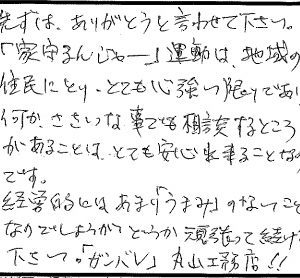 先ずは、ありがとうと言わせて下さい。
「家守るんじゃー」運動は、地域の
住民にとり、とても心強い限りであり
何か、ささいな事でも相談するところ
があることは、とても安心出来ることなの
です。
経営的には、あまり「うまみ」のないことに
なのでしょうがどうか頑張って続け
下さい。「ガンバレ」丸山工務店!!